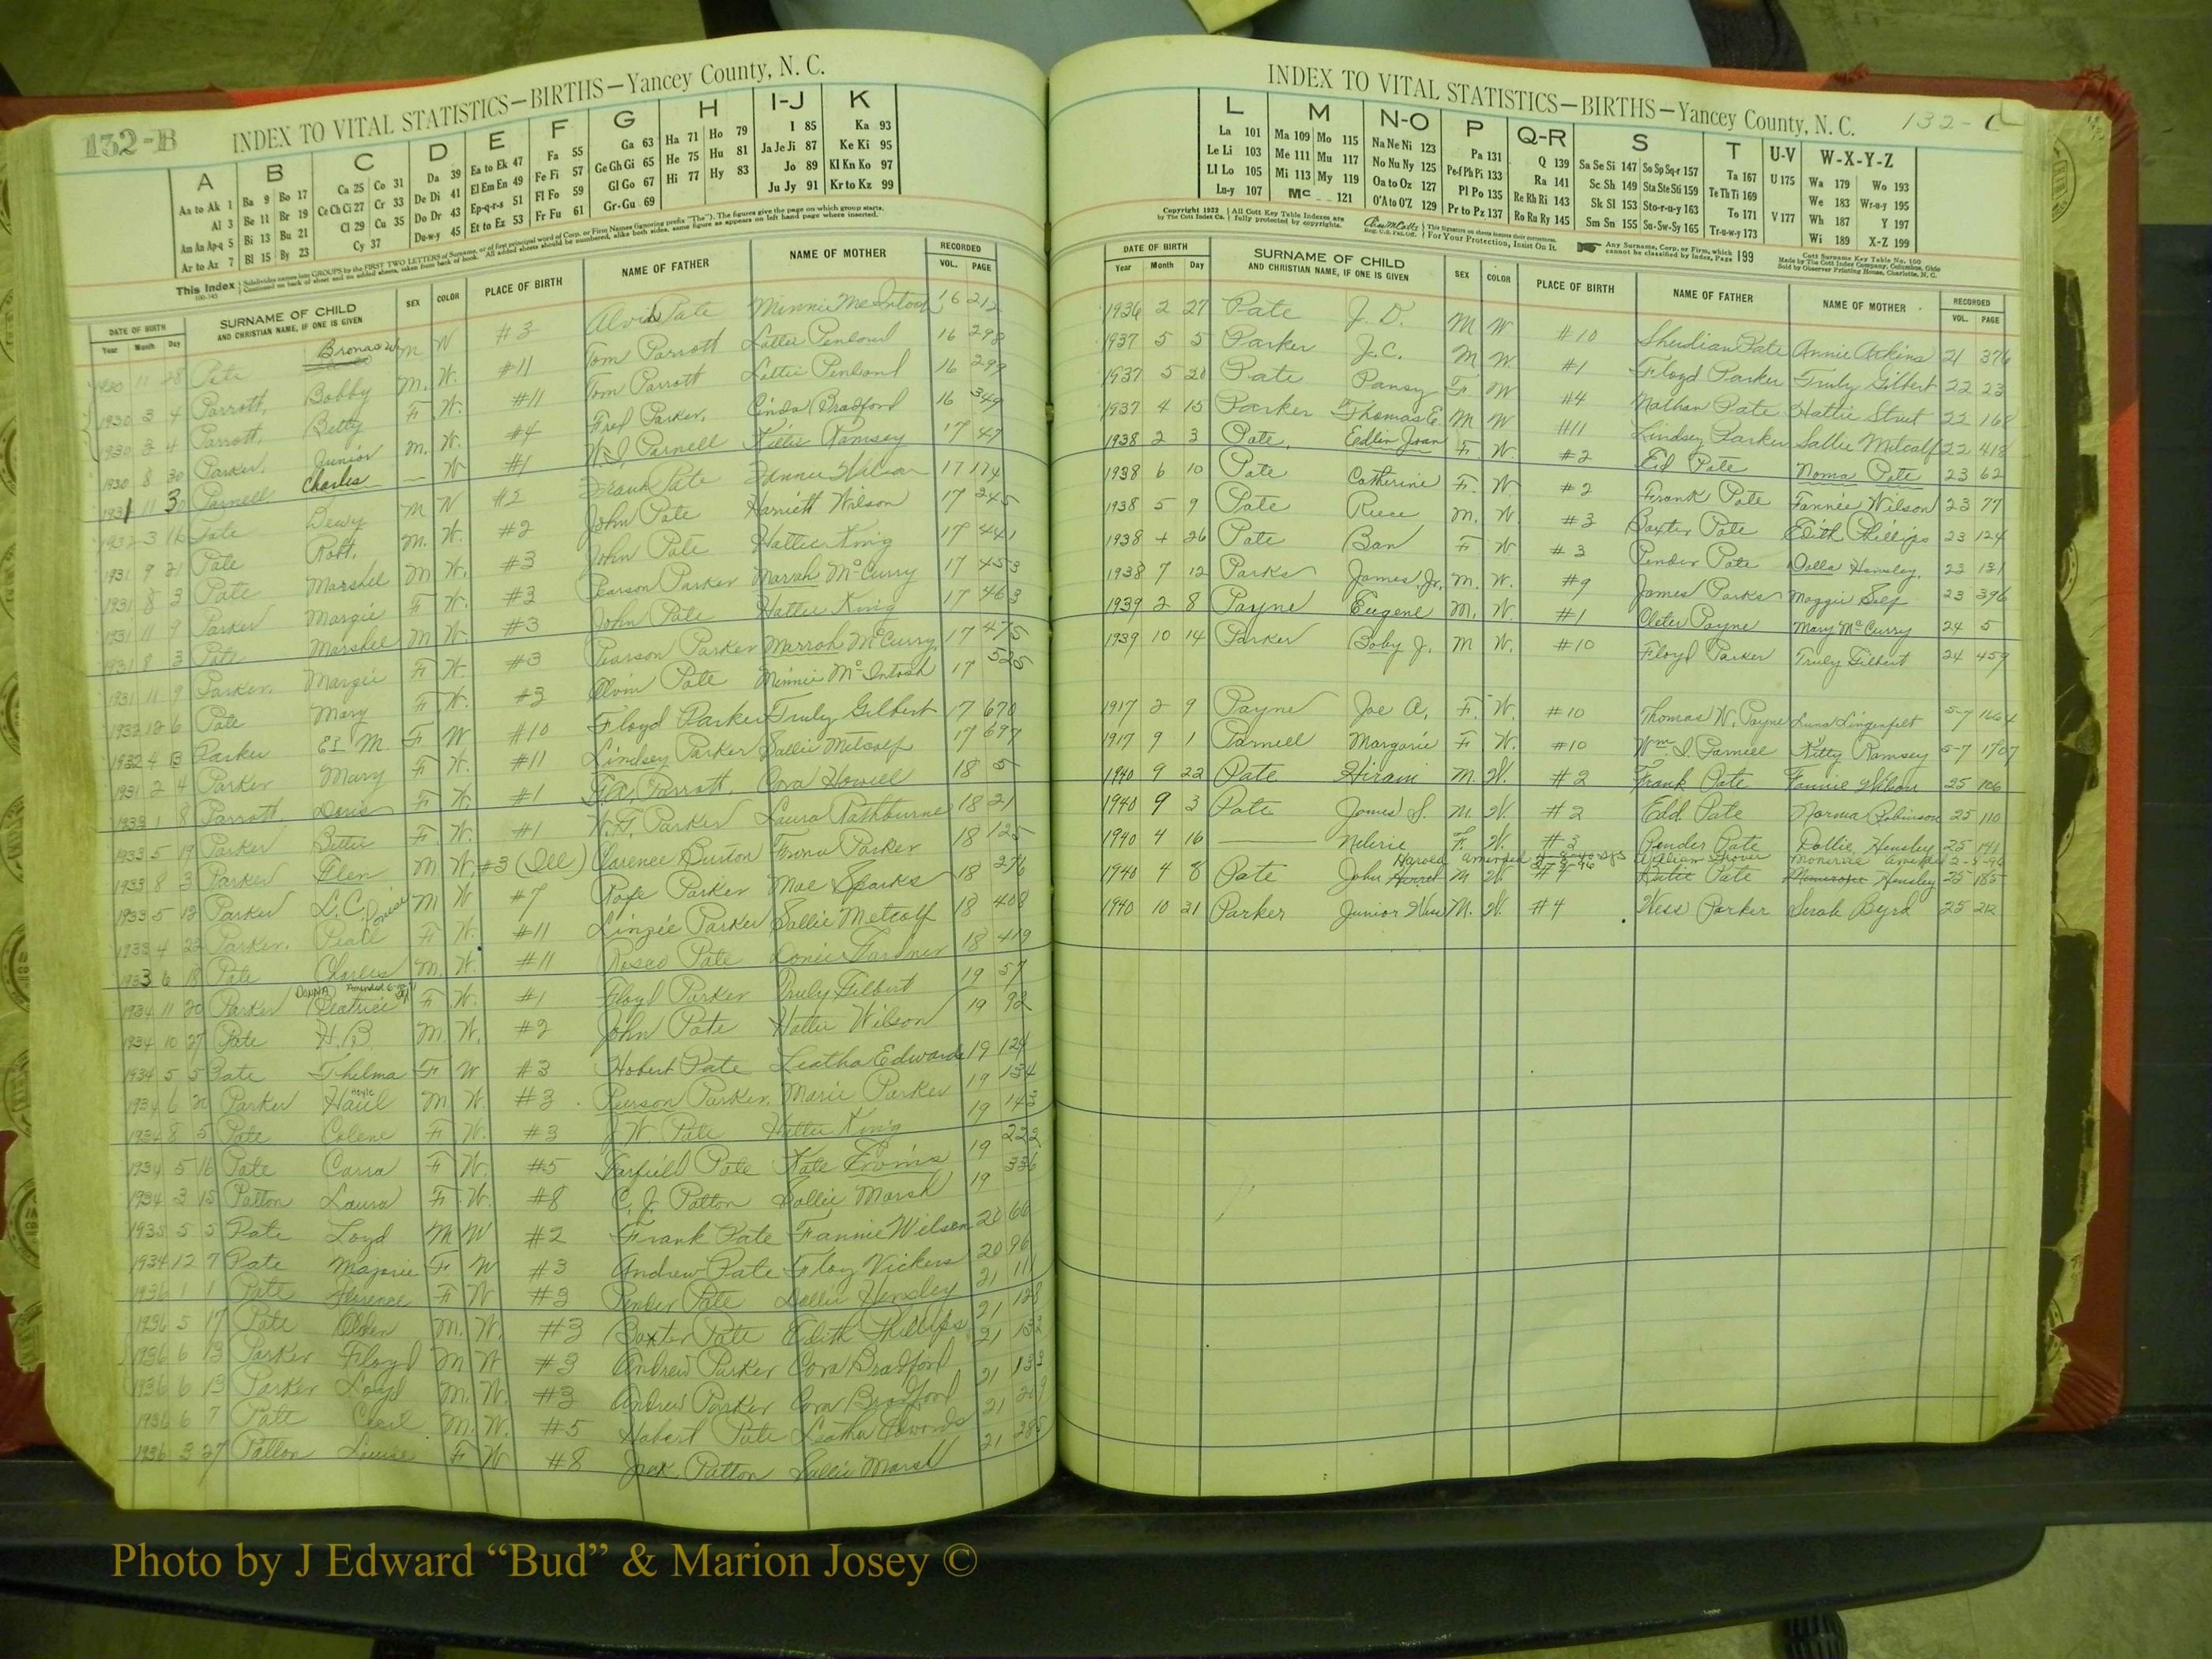 132-B
INDEX TO VITAL STATISTICS—BIRTHS—Yancey County, N. C.
A B C D E F G H I-J K
Aa to Ak 1 Ba 9 Bo 17 Ca 25 Co 31 Da 39 Ea to Ek 47 Fa 55 Ga 63 Ha 71 Ho 79 I 85 Ka 93
Al 3 Be 11 Br 19 Ce Ch Ci 27 Cr 33 De Di 41 El Em En 49 Fe Fi 57 Ge Gh Gi 65 He 75 Hu 81 Ja Je Ji 87 Ke Ki 95
Am An Ap-q 5 Bi 13 Bu 21 Cl 29 Cu 35 Do Dr 43 Ep-q-r-s 51 Fl Fo 59 Gl Go 67 Hi 77 Hy 83 Jo 89 Kl Kn Ko 97
Ar to Az 7 Bl 15 By 23 Cy 37 Du-w-y 45 Et to Ez 53 Fr Fu 61 Gr-Gu 69 Ju Jy 91 Kr to Kz 99
This Index
DATE OF BIRTH SURNAME OF CHILD SEX COLOR PLACE OF BIRTH NAME OF FATHER NAME OF MOTHER RECORDED
Year Month Day AND CHRISTIAN NAME, IF ONE IS GIVEN VOL. PAGE
1930 11 28 Pate M W #3 Pate Minnie McIntosh 16 212
1930 3 4 Parrott, Bobby M. W. #11 Tom Parrott Lottie Penland 16 298
1930 3 4 Parrott, Betty F W. #11 Tom Parrott Lottie Penland 16 299
1930 8 30 Parker, Junior M. W. #4 Fred Parker, Cinda Bradford 16 349
1931 11 30 Parnell Charles — W #1 W. I. Parnell Kittie Ramsey 17 47
1932 3 16 Pate Dewy M W #2 Frank Pate Fannie Wilson 17 174
1931 9 21 Pate Robt. M. W. #2 John Pate Harriett Wilson 17 245
1931 8 3 Pate Marshel M W. #3 John Pate Hattie King 17 441
1931 11 9 Parker Margie F W. #3 Pearson Parker Mariah McCurry 17 453
1931 8 3 Pate Marshel M W #3 John Pate Hattie King 17 463
1931 11 9 Parker, Margie F W. #3 Pearson Parker Marrah McCurry, 17 475
1932 12 6 Pate Mary F W. #3 Alvin Pate Minnie McIntosh 17 525
1932 4 13 Parker M. F W #10 Floyd Parker Truly Gilbert 17 670
1931 2 4 Parker Mary F W. #11 Lindsey Parker Sallie Metcalf 17 697
1933 1 8 Parrott Doris F W #1 Parrott, Cora Howell 18 5
1933 5 19 Parker Bettie F. W. #1 W. F. Parker Laura Rathburne 18 21
1933 8 3 Parker Glen M W. #3 (Ill) Clarence Burton Emma Parker 18 125
1933 5 12 Parker L. C. M W #7 Pope Parker Mae Sparks 18 276
1933 4 23 Parker, Pearl F W. #11 Linzie Parker Sallie Metcalf 18 408
1933 6 18 Pate Charles M. W. #11 Rosco Pate Gardner 18 419
1934 11 20 Parker Beatrice F W. #1 Floyd Parker Truly Gilbert 19 57
1934 10 27 Pate H. B. M. W. #2 John Pate Hattie Wilson 19 92
1934 5 5 Pate Thelma F W #3 Hobert Pate Leatha Edwards 19 124
1934 6 Parker M W. #3 Pierson Parker, Marie Parker 19 134
1934 8 5 Pate Colene F W. #3 J. W. Pate Hattie King 19 143
1934 5 16 Pate Carra F W. #5 Garfield Pate Kate Ervins 19 222
1934 3 15 Patton Laura F W. #8 C. J. Patton Sallie Marsh 19 336
1935 5 5 Pate Loyd M W #2 Frank Pate Fannie Wilson 20 66
1934 12 7 Pate Majorie F W #3 Andrew Pate Floy Vickers 20 96
1936 1 1 Pate Florence F W #3 Pender Pate Dollie Hensley 21 11
1936 5 17 Pate Olden M. W. #3 Baxter Pate Edith Phillips 21 128
1936 6 13 Parker Floyd M W #3 Andrew Parker Cora Bradford 21 132
1936 6 13 Parker Loyd M. W. #3 Andrew Parker Cora Bradford 21 133
1936 6 7 Pate Cecil M. W. #5 Hobert Pate Leatha Edwards 21 209
1936 3 27 Patton Louise F W #8 Jack Patton Sallie Marsh 21 285
INDEX TO VITAL STATISTICS—BIRTHS—Yancey County, N. C.
L M N-O P Q-R S T U-V W-X-Y-Z
La 101 Ma 109 Mo 115 Na Ne Ni 123 Pa 131 Q 139 Sa Se Si 147 So Sp Sq-r 157 Ta 167 U 175 Wa 179 Wo 193
Le Li 103 Me 111 Mu 117 No Nu Ny 125 Pe-f Ph Pi 133 Ra 141 Sc Sh 149 Sta Ste Sti 159 Te Th Ti 169 We 183 Wr-u-y 195
Ll Lo 105 Mi 113 My 119 Oa to Oz 127 Pl Po 135 Re Rh Ri 143 Sk Sl 153 Sto-r-u-y 163 To 171 V 177 Wh 187 Y 197
Lu-y 107 Mc 121 O'A to O'Z 129 Pr to Pz 137 Ro Ru Ry 145 Sm Sn 155 Su-Sw-Sy 165 Tr-u-w-y 173 Wi 189 X-Z 199
Copyright 1932 by The Cott Index Co. All Cott Key Table Indexes are fully protected by copyrights. For Your Protection, Insist On It. Any Surname, Corp. or Firm, which cannot be classified by Index, Page 199
Cott Surname Key Table No. 100 Made by The Cott Index Company, Columbus, Ohio Sold by Observer Printing House, Charlotte, N. C.
DATE OF BIRTH SURNAME OF CHILD SEX COLOR PLACE OF BIRTH NAME OF FATHER NAME OF MOTHER RECORDED
Year Month Day AND CHRISTIAN NAME, IF ONE IS GIVEN VOL. PAGE
1936 2 27 Pate J. D. M W #10 Sheridian Pate Annie Atkins 21 376
1937 5 5 Parker J. C. M W #1 Floyd Parker Truly Gilbert 22 23
1937 5 20 Pate Pansy F W #4 Nathan Pate Hattie 22 168
1937 4 15 Parker Thomas E. M W #11 Lindsey Parker Sallie Metcalf 22 418
1938 2 3 Pate, Edlin Joan F. W. #2 Ed Pate Noma Pate 23 62
1938 6 10 Pate Catherine F. W. #2 Frank Pate Fannie Wilson 23 77
1938 5 9 Pate Reece M. W. #3 Baxter Pate Edith Phillips 23 124
1938 4 26 Pate Ban F W #3 Pender Pate Dolla Hensley, 23 131
1938 7 12 Parks James, Jr. M. W. #9 James Parks Maggie Self 23 396
1939 2 8 Payne Eugene M. W. #1 Cleter Payne Mary McCurry 24 5
1939 10 14 Parker Boby J. M W. #10 Floyd Parker Truly Gilbert 24 459
1917 2 9 Payne Joe A. F. W. #10 Thomas W. Payne Luna 5-7 1664
1917 9 1 Parnell Margarie F W. #10 Wm I. Parnell Kitty Ramsey 5-7 1707
1940 9 22 Pate Hiram M. W. #2 Frank Pate Fannie Wilson 25 106
1940 9 3 Pate James S. M. W. #2 Edd Pate Norma Robinson 25 110
1940 4 16 —— Nelirie F. W. #3 Pender Pate Dollie Hensley 25 141
1940 4 8 Pate John M W. #4 Pate Hensley 25 185
1940 10 21 Parker Junior Wess M. W. #4 Wess Parker Sarah Byrd 25 212
Photo by J Edward “Bud” & Marion Josey ©